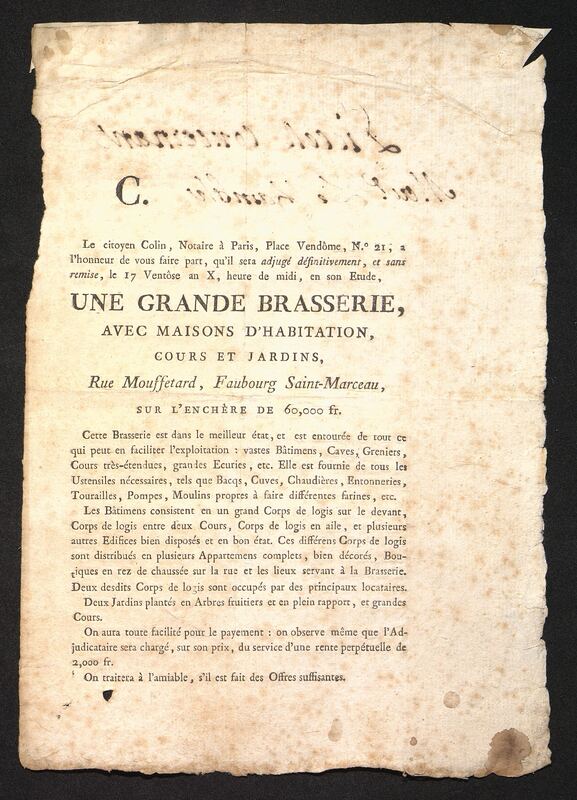 C.
Le citoyen Colin, Notaire à Paris, Place Vendôme, N.º 21, a
l'honneur de vous faire part, qu'il sera adjugé définitivement, et sans
remise, le 17 Ventôse an X, heure de midi, en son Etude,
UNE GRANDE BRASSERIE,
AVEC MAISONS D'HABITATION,
COURS ET JARDINS,
Rue Mouffetard, Faubourg Saint-Marceau,
SUR L'ENCHÈRE DE 60,000 fr.
Cette Brasserie est dans le meilleur état, et est entourée de tout ce
qui peut en faciliter l'exploitation : vastes Bâtimens, Caves, Greniers,
Cours très-étendues, grandes Ecuries, etc. Elle est fournie de tous les
Ustensiles nécessaires, tels que Bacqs, Cuves, Chaudières, Entonneries,
Tourailles, Pompes, Moulins propres à faire différentes farines, etc.
Les Bâtimens consistent en un grand Corps de logis sur le devant,
Corps de logis entre deux Cours, Corps de logis en aile, et plusieurs
autres Edifices bien disposés et en bon état. Ces différens Corps de logis
sont distribués en plusieurs Appartemens complets, bien décorés, Bou-
tiques en rez de chaussée sur la rue et les lieux servant à la Brasserie.
Deux desdits Corps de logis sont occupés par des principaux locataires.
Deux Jardins plantés en Arbres fruitiers et en plein rapport, et grandes
Cours.
On aura toute facilité pour le payement : on observe même que l'Ad-
judicataire sera chargé, sur son prix, du service d'une rente perpétuelle de
2,000 fr.
On traitera à l'amiable, s'il est fait des Offres suffisantes.